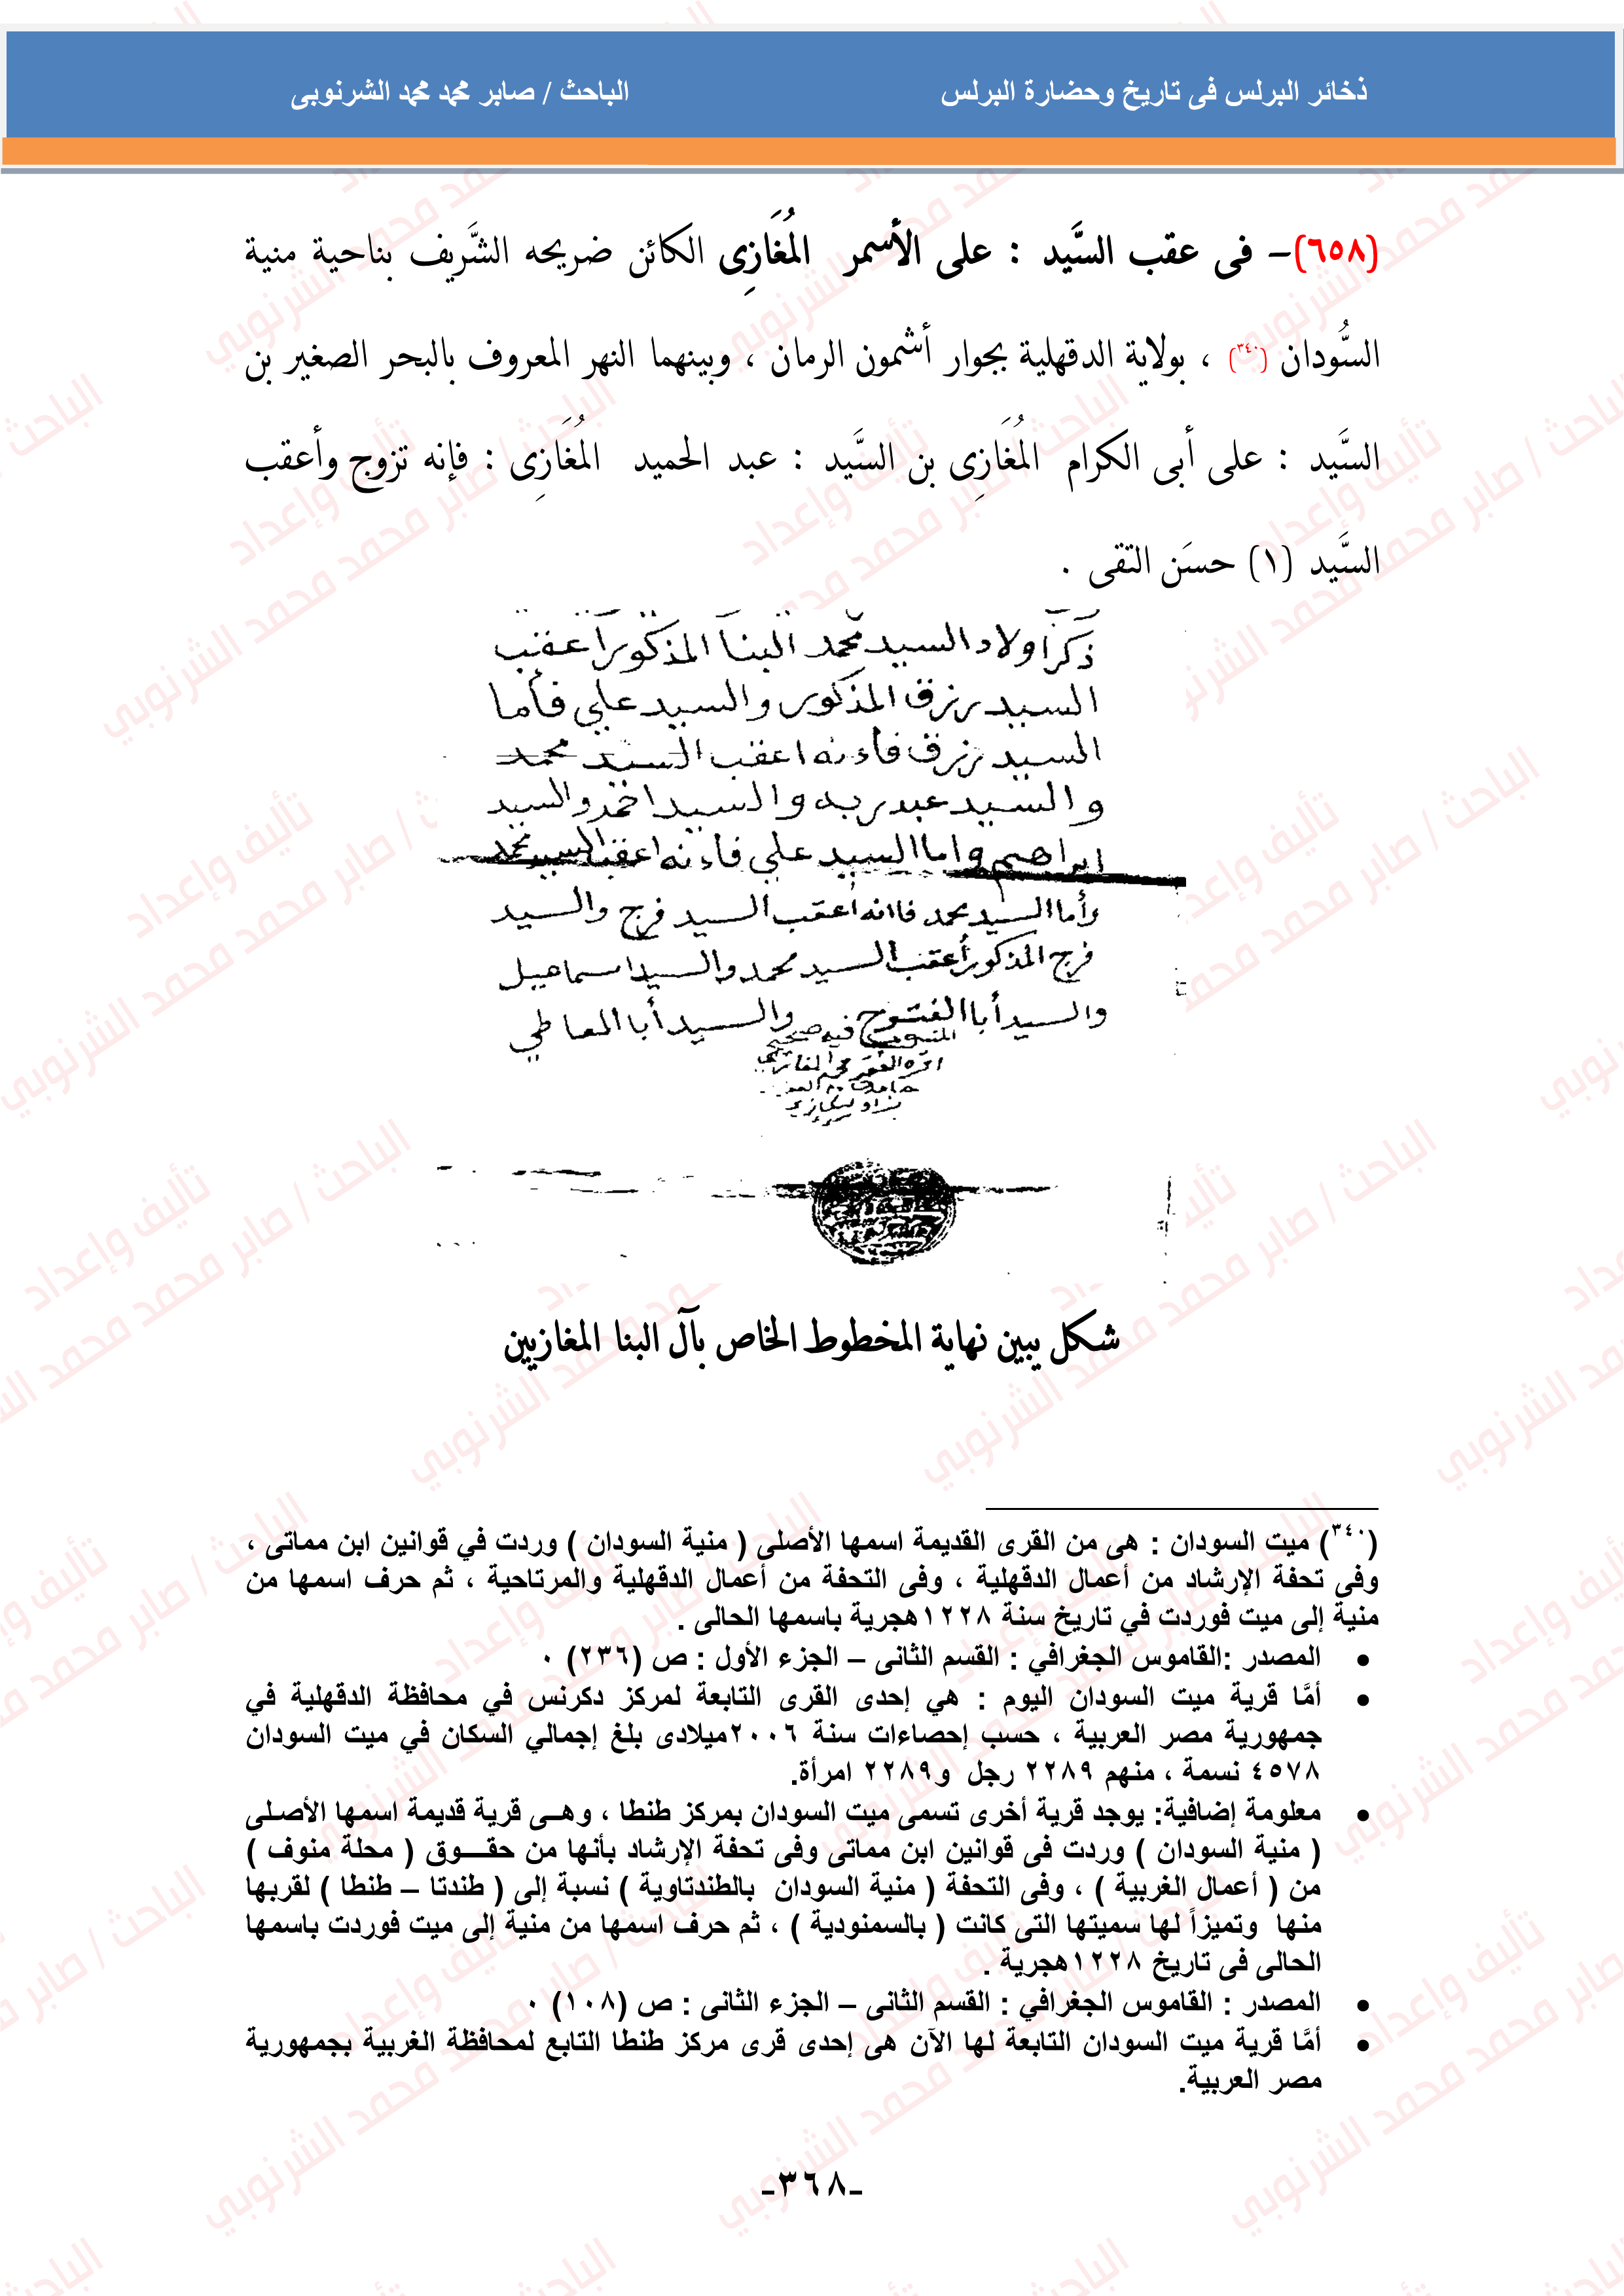 ذخائر البرلس فى تاريخ وحضارة البرلس
الباحث / صابر محمد محمد الشرنوبى
(٦٥٨)- فى عقب السَّيد : على الأسمر المُغَازِى الكائن ضريحه الشَّريف بناحية منية
السُّودان (٣٤٠) ، بولاية الدقهلية بجوار أشمون الرمان ، وبينهما النهر المعروف بالبحر الصغير بن
السَّيد : على أبى الكرام المُغَازِى بن السَّيد : عبد الحميد المُغَازِى : فإنه تزوج وأعقب
السَّيد (١) حسَن التقى .
ذكر اولاد السيد محمد البنا المذكور اعقب
السيد رزق المذكور والسيد علي فأما
السيد رزق فاءنه اعقب السيد محمد
والسيد عبدربه والسيد احمد والسيد
ابراهيم واما السيد علي فاءنه اعقب السيد محمد
وأما السيد محمد فاانه أعقب السيد فرج والسيد
فرج المذكور أعقب السيد محمد والسيد اسماعيل
والسيد أبا الفتوح والسيد أبا المعاطي
فيه صحيح
شكل يبين نهاية المخطوط الخاص بآل البنا المغازيين
(٣٤٠) ميت السودان : هى من القرى القديمة اسمها الأصلى ( منية السودان ) وردت في قوانين ابن مماتى ،
وفى تحفة الإرشاد من أعمال الدقهلية ، وفى التحفة من أعمال الدقهلية والمرتاحية ، ثم حرف اسمها من
منية إلى ميت فوردت في تاريخ سنة ١٢٢٨هجرية باسمها الحالى .
• المصدر :القاموس الجغرافي : القسم الثانى – الجزء الأول : ص (٢٣٦) ٠
• أمَّا قرية ميت السودان اليوم : هي إحدى القرى التابعة لمركز دكرنس في محافظة الدقهلية في
جمهورية مصر العربية ، حسب إحصاءات سنة ٢٠٠٦ميلادى بلغ إجمالي السكان في ميت السودان
٤٥٧٨ نسمة ، منهم ٢٢٨٩ رجل و٢٢٨٩ امرأة.
• معلومة إضافية: يوجد قرية أخرى تسمى ميت السودان بمركز طنطا ، وهـى قرية قديمة اسمها الأصلى
( منية السودان ) وردت فى قوانين ابن مماتى وفى تحفة الإرشاد بأنها من حقـــوق ( محلة منوف )
من ( أعمال الغربية ) ، وفى التحفة ( منية السودان بالطندتاوية ) نسبة إلى ( طندتا – طنطا ) لقربها
منها وتميزاً لها سميتها التى كانت ( بالسمنودية ) ، ثم حرف اسمها من منية إلى ميت فوردت باسمها
الحالى فى تاريخ ١٢٢٨هجرية .
• المصدر : القاموس الجغرافي : القسم الثانى – الجزء الثانى : ص (١٠٨) ٠
• أمَّا قرية ميت السودان التابعة لها الآن هى إحدى قرى مركز طنطا التابع لمحافظة الغربية بجمهورية
مصر العربية.
-٣٦٨-
تأليف وإعداد
الباحث / صابر محمد محمد الشرنوبي